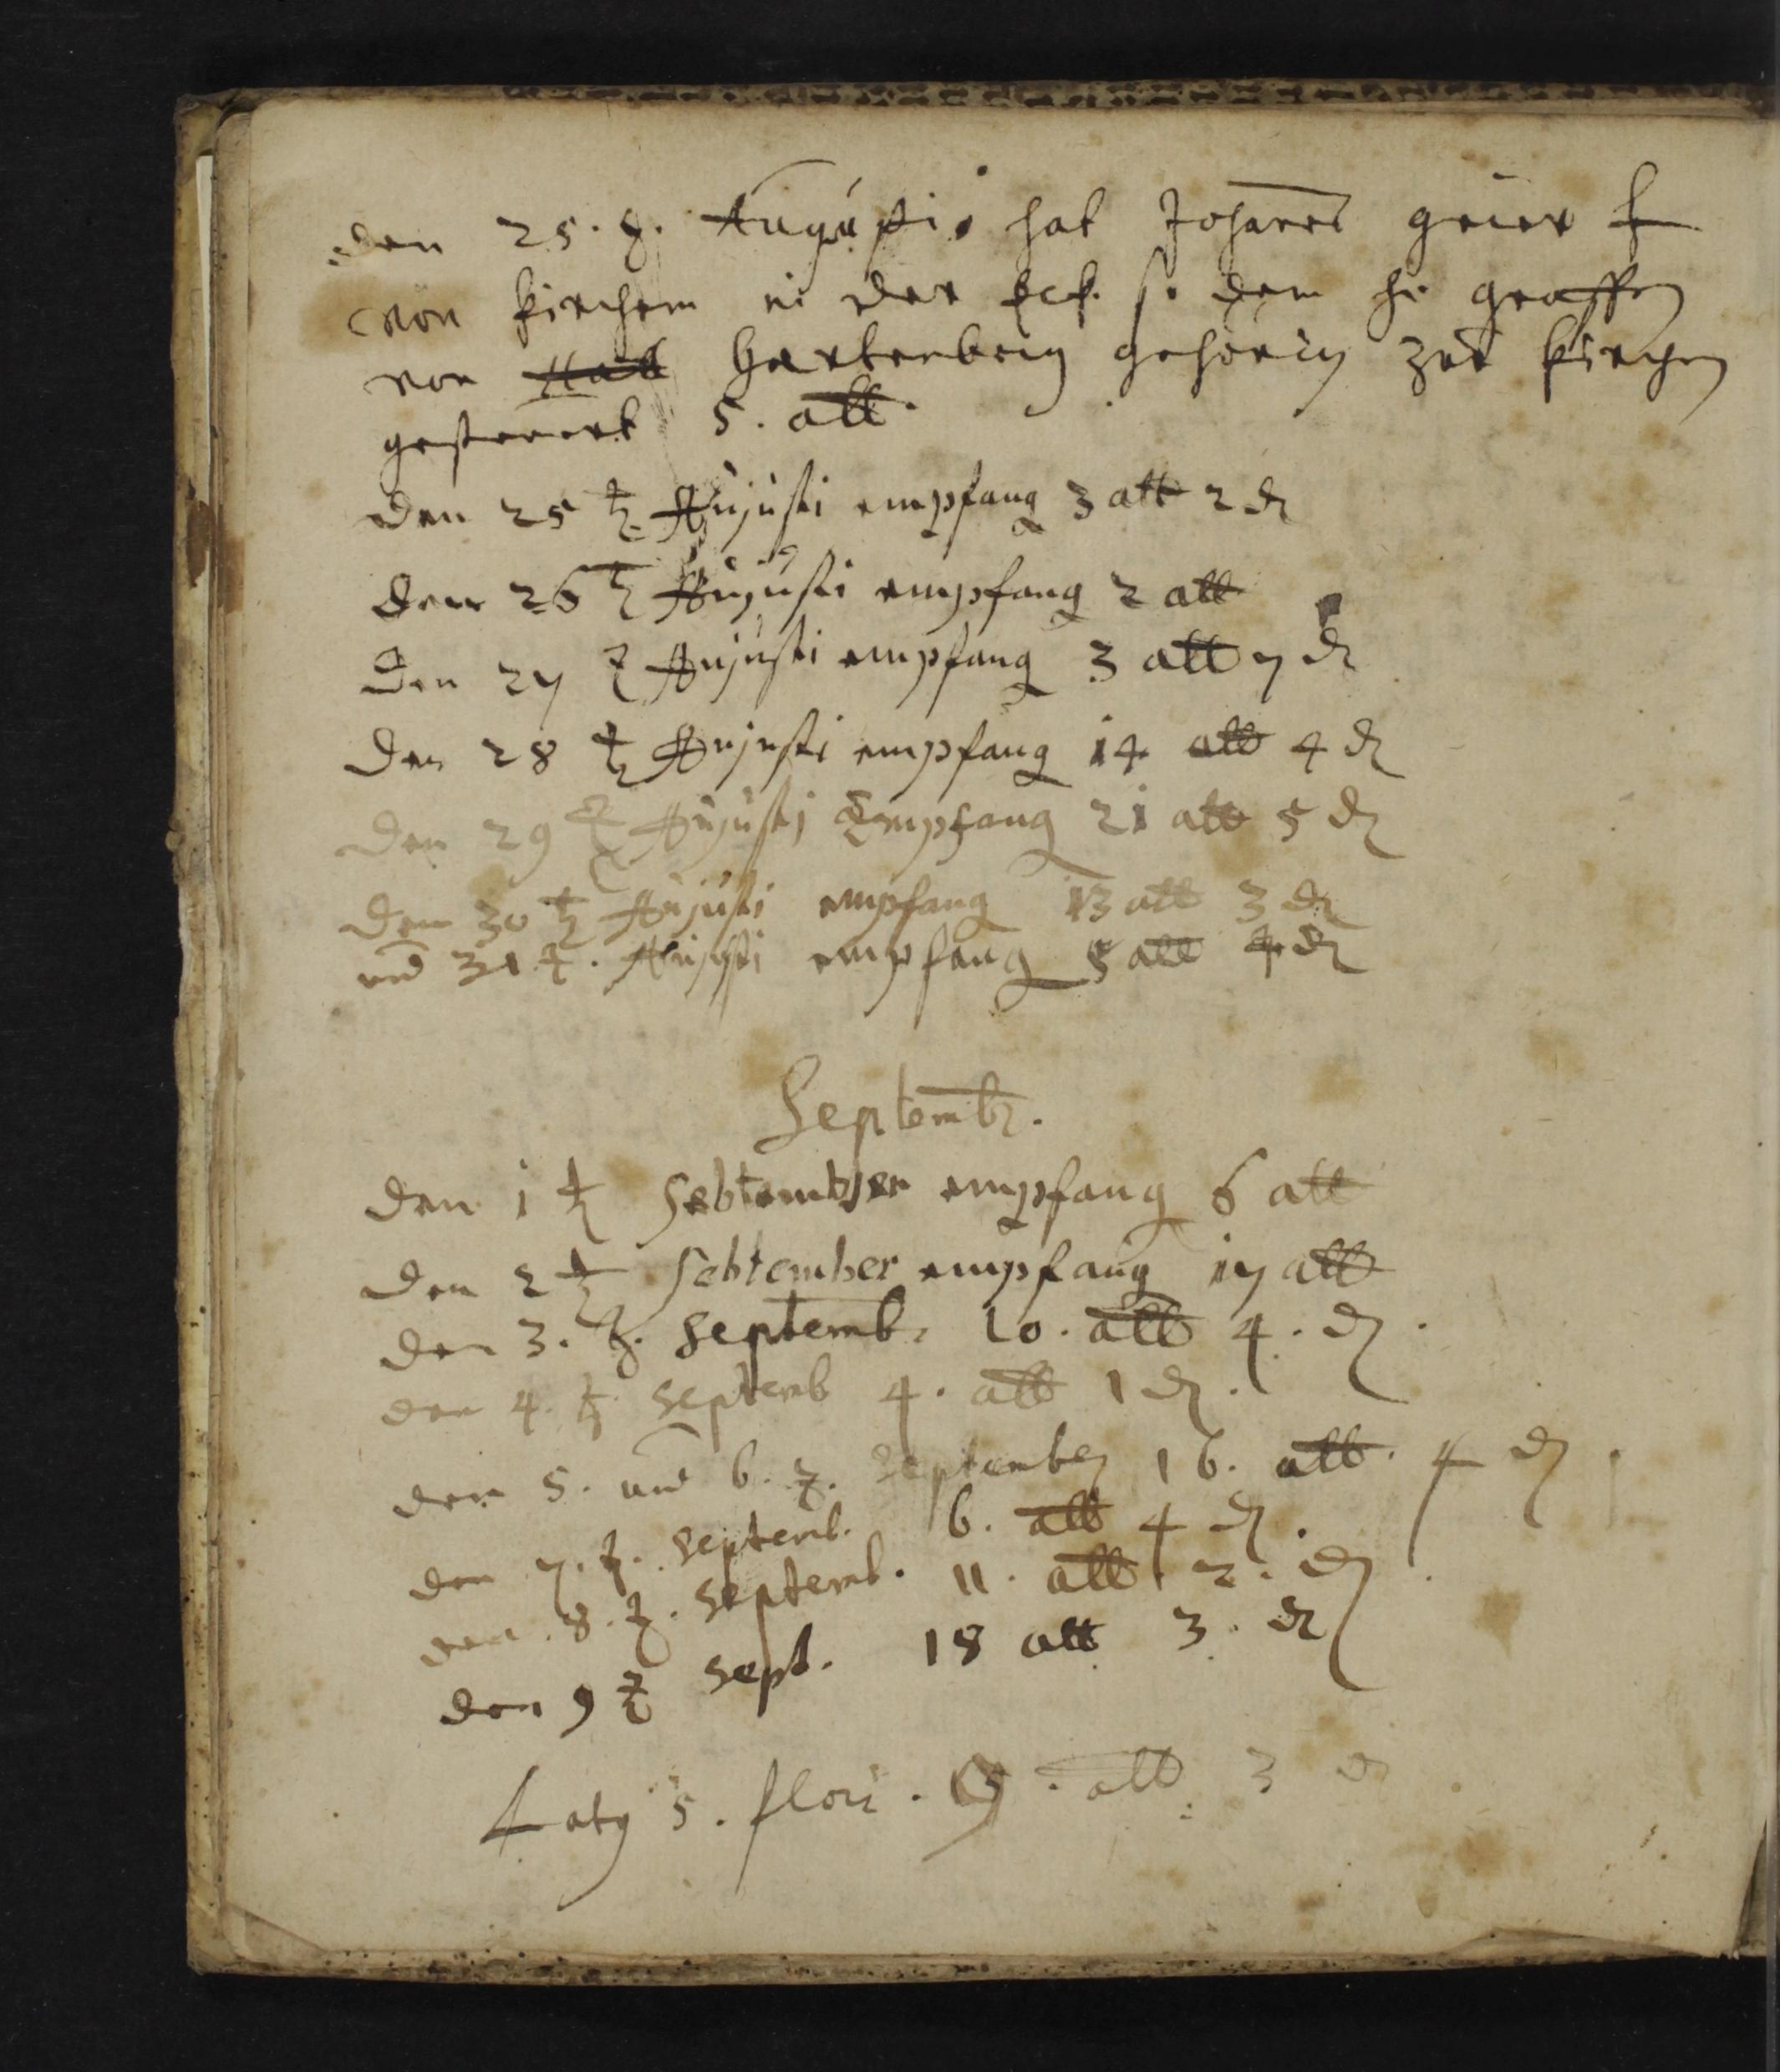 den 25. t. Augusti. hat Johannes geier
von kirchem in der Eck. so dem h. graffen
von Hartenberg gehörig zur kirchen
gesteuert 5. alb.
den 25 t Aujusti empfang 3 alb 2 d
den 26 t Aujusti empfang 2 alb
den 27 t Aujusti empfang 3 alb 7 d
den 28 t Aujusti empfang 14 alb 4 d
den 29 t Aujusti Empfang 21 alb 5 d
den 30 t Aujusti empfang 13 alb 3 d
und 31 t. Aujusti empfang 5 alb 4 d
Septembr.
den 1 t Sebtember empfang 6 alb
den 2 t Sebtember empfang 17 alb
den 3. t. Septemb. 10. alb 4. d.
den 4. t. Septemb 4. alb 1 d.
den 5. und 6. t. September 16. alb. 4 d
den 7. t. Septemb. 6. alb 4 d.
den. 8. t. Septemb. 11. alb 2. d
den 9 t Sept. 18 alb 3. d
Latg 5. flori. alb 3 d